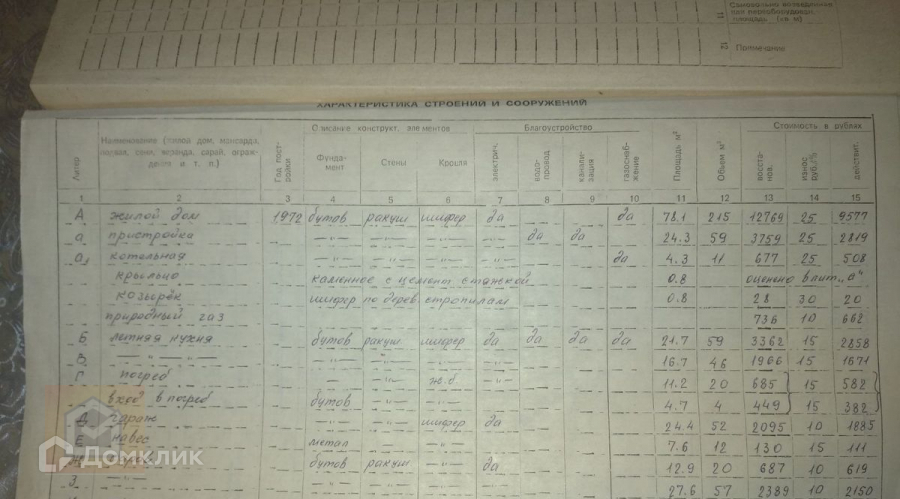 Самовольно возведенная
или переоборудован.
площадь (кв м)
14
Примечание
15
ХАРАКТЕРИСТИКА СТРОЕНИЙ И СООРУЖЕНИЙ
Литер
Наименование (жилой дом, мансарда, подвал, сени, веранда, сарай, ограждения и т. п.)
Год постройки
Описание конструкт. элементов
Благоустройство
Площадь м²
Объем м³
Стоимость в рублях
Фундамент
Стены
Кровля
электрич.
водопровод
канализация
газоснабжение
восстанов.
износ руб./%
действит.
1 2 3 4 5 6 7 8 9 10 11 12 13 14 15
А жилой дом 1972 бутов ракуш шифер да да 78.1 215 12769 25 9577
а пристройка —„— —„— —„— —„— да да 24.3 59 3759 25 2819
а₁ котельная —„— —„— —„— —„— да 4.3 11 677 25 508
крыльцо каменное с цементн стяжкой 0.8 оценено в лит. „а"
козырёк шифер по дерев стропилам 0.8 28 30 20
природный газ 736 10 662
Б летняя кухня бутов ракуш шифер да да да да 21.7 59 3362 15 2858
В —„—„— —„— —„— —„— —„— 16.7 46 1966 15 1671
Г погреб - —„— ж.б. —„— 11.2 20 685 15 582
вход в погреб бутов 4.7 4 449 15 382
Д гараж —„— —„— шифер да 24.4 52 2095 10 1885
Е навес метал 7.6 12 130 15 111
бутов ракуш —„— да 12.9 20 687 10 619
З 27.6 57 2389 10 2150
Домклик